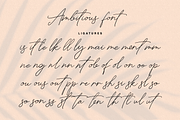 Ambitious font
LIGATURES
is it lo lk ll ly max me mont mm
ne ng nk nn nt ob of ol on oo op
ou ous out pp re rr sh si sk sl so
so son ss st ta ten th tt ul ut